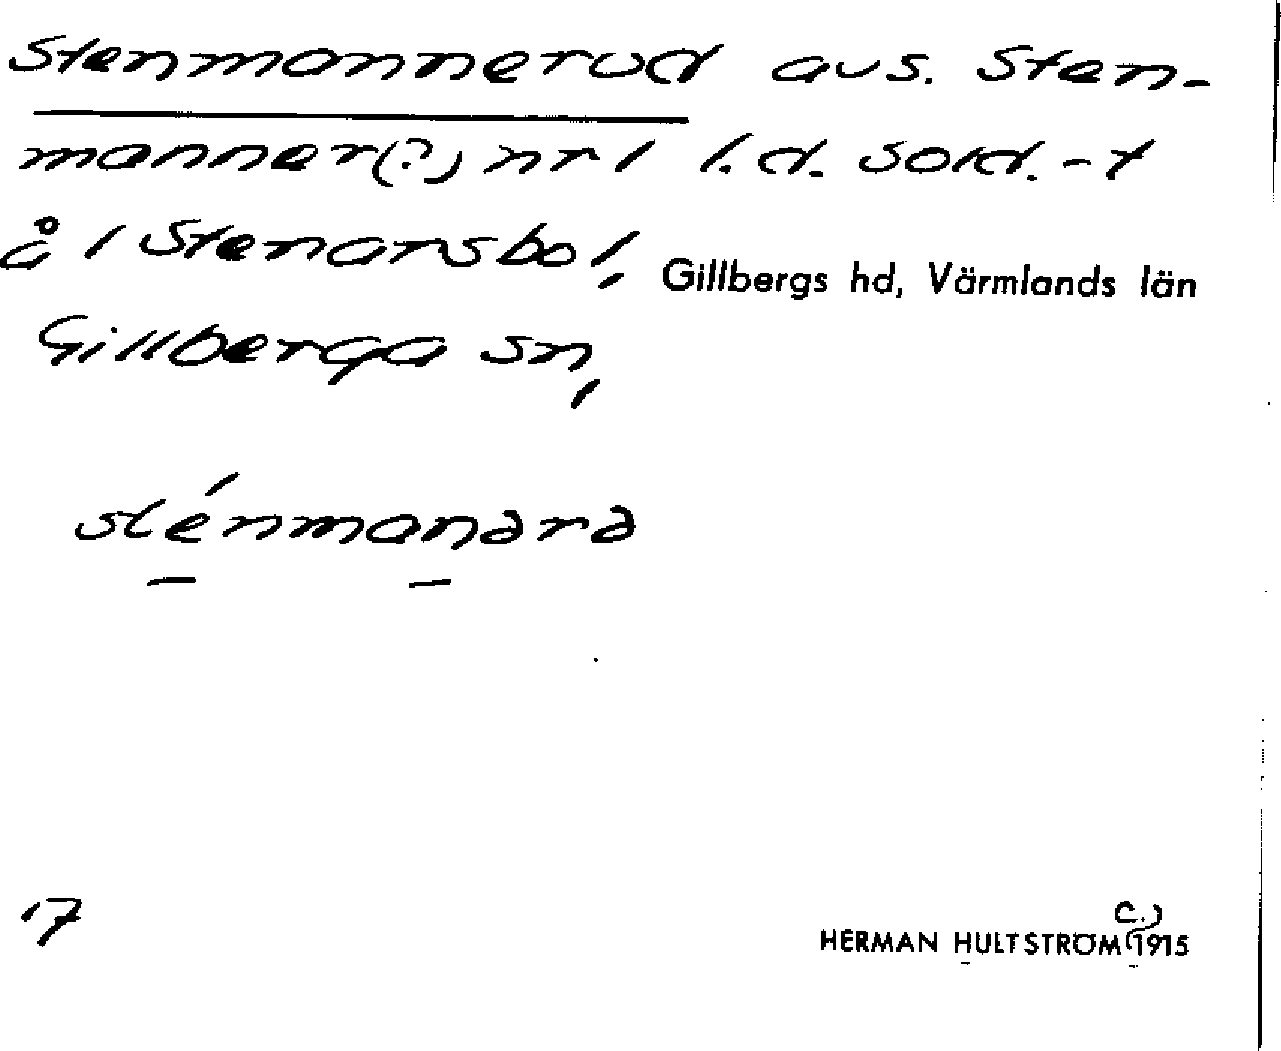 Stenmannerud avs. Sten-
manner(?) nr 1 l.d. sold.-t
å 1 Stenarsbol,
Gillbergs hd, Värmlands län
Gillberga sn,
sténmanərə
17
HERMAN HULTSTRÖM (c.) 1915